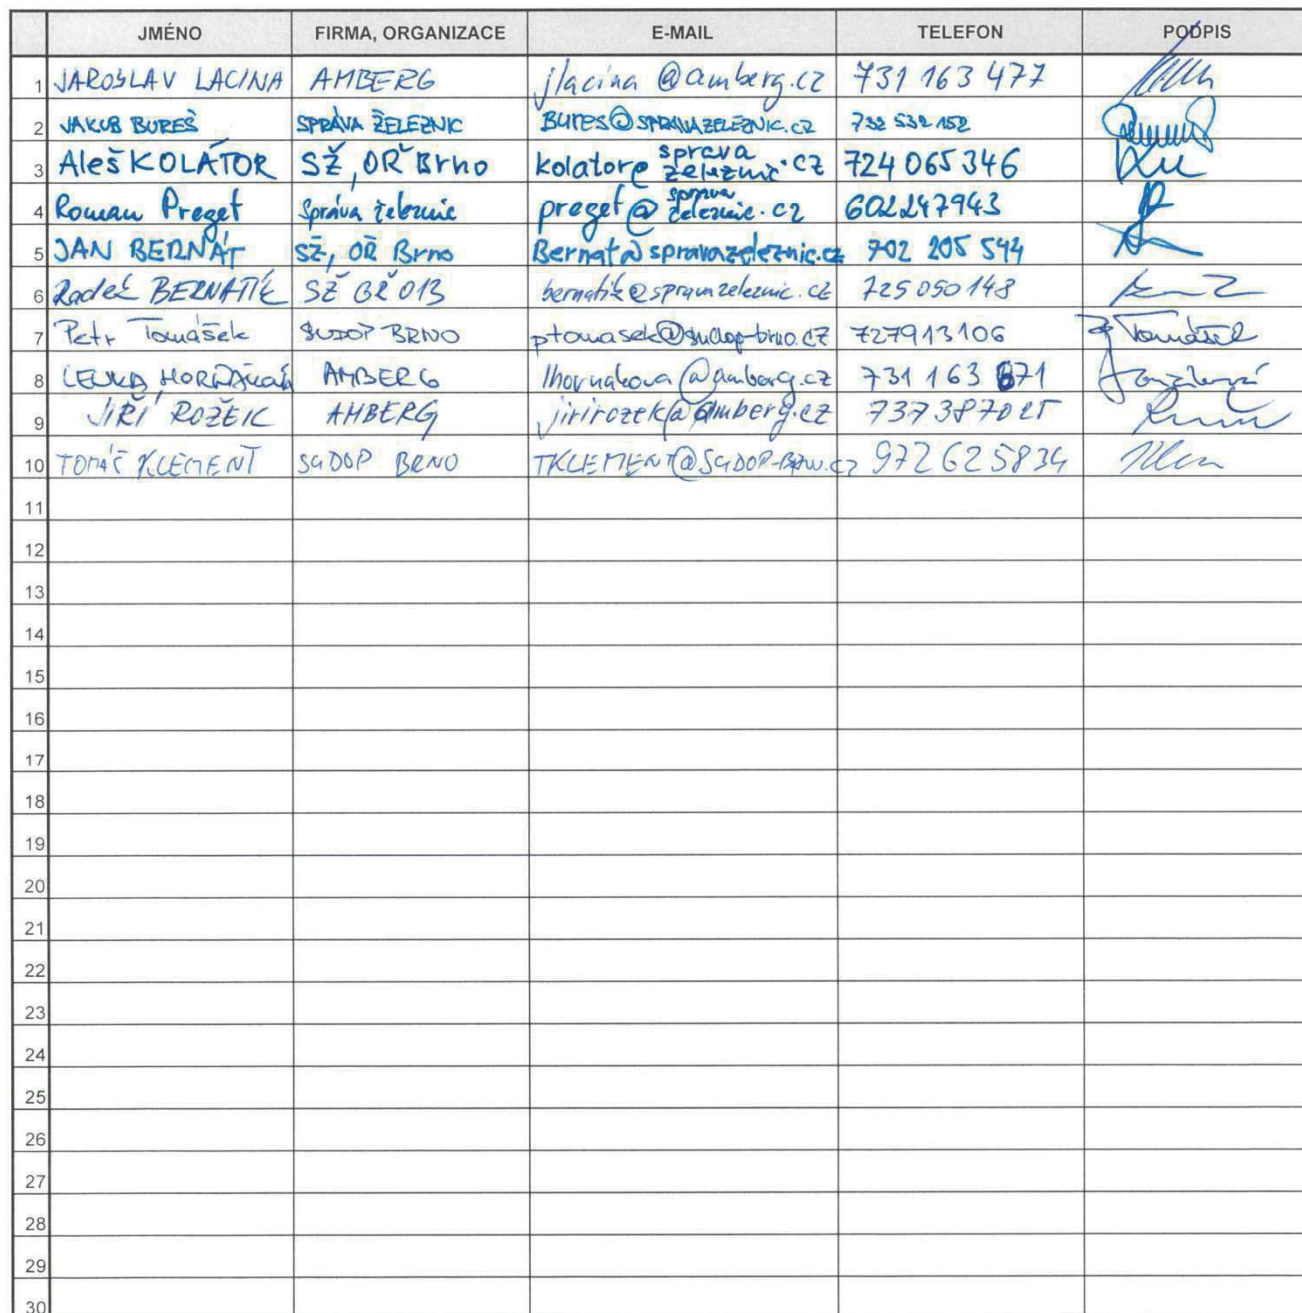 JMÉNO FIRMA, ORGANIZACE E-MAIL TELEFON PODPIS
1 JAROSLAV LACINA AMBERG jlacina@amberg.cz 731 163 477
2 JAKUB BUREŠ SPRÁVA ŽELEZNIC BURES@SPRAVAZELEZNIC.CZ 732 532 152
3 Aleš KOLÁTOR SŽ, OŘ Brno kolator@spravazeleznic.cz 724 065 346
4 Roman Preget Správa železnic preget@spravaželeznic.cz 602247943
5 JAN BERNÁT SŽ, OŘ Brno Bernat@spravazeleznic.cz 702 205 544
6 Radek BERNATÍK SŽ GŘ O13 bernatik@spravazeleznic.cz 725 050 148
7 Petr Tomášek SUDOP BRNO ptomasek@sudop-brno.cz 727913106 Tomášek
8 LENKA HORŇÁKOVÁ AMBERG lhornakova@amberg.cz 731 163 671
9 JIŘÍ ROŽEK AMBERG jirirozek@amberg.cz 737387025
10 TOMÁŠ KLEMENT SUDOP BRNO TKLEMENT@SUDOP-BRNO.CZ 972625834
11
12
13
14
15
16
17
18
19
20
21
22
23
24
25
26
27
28
29
30